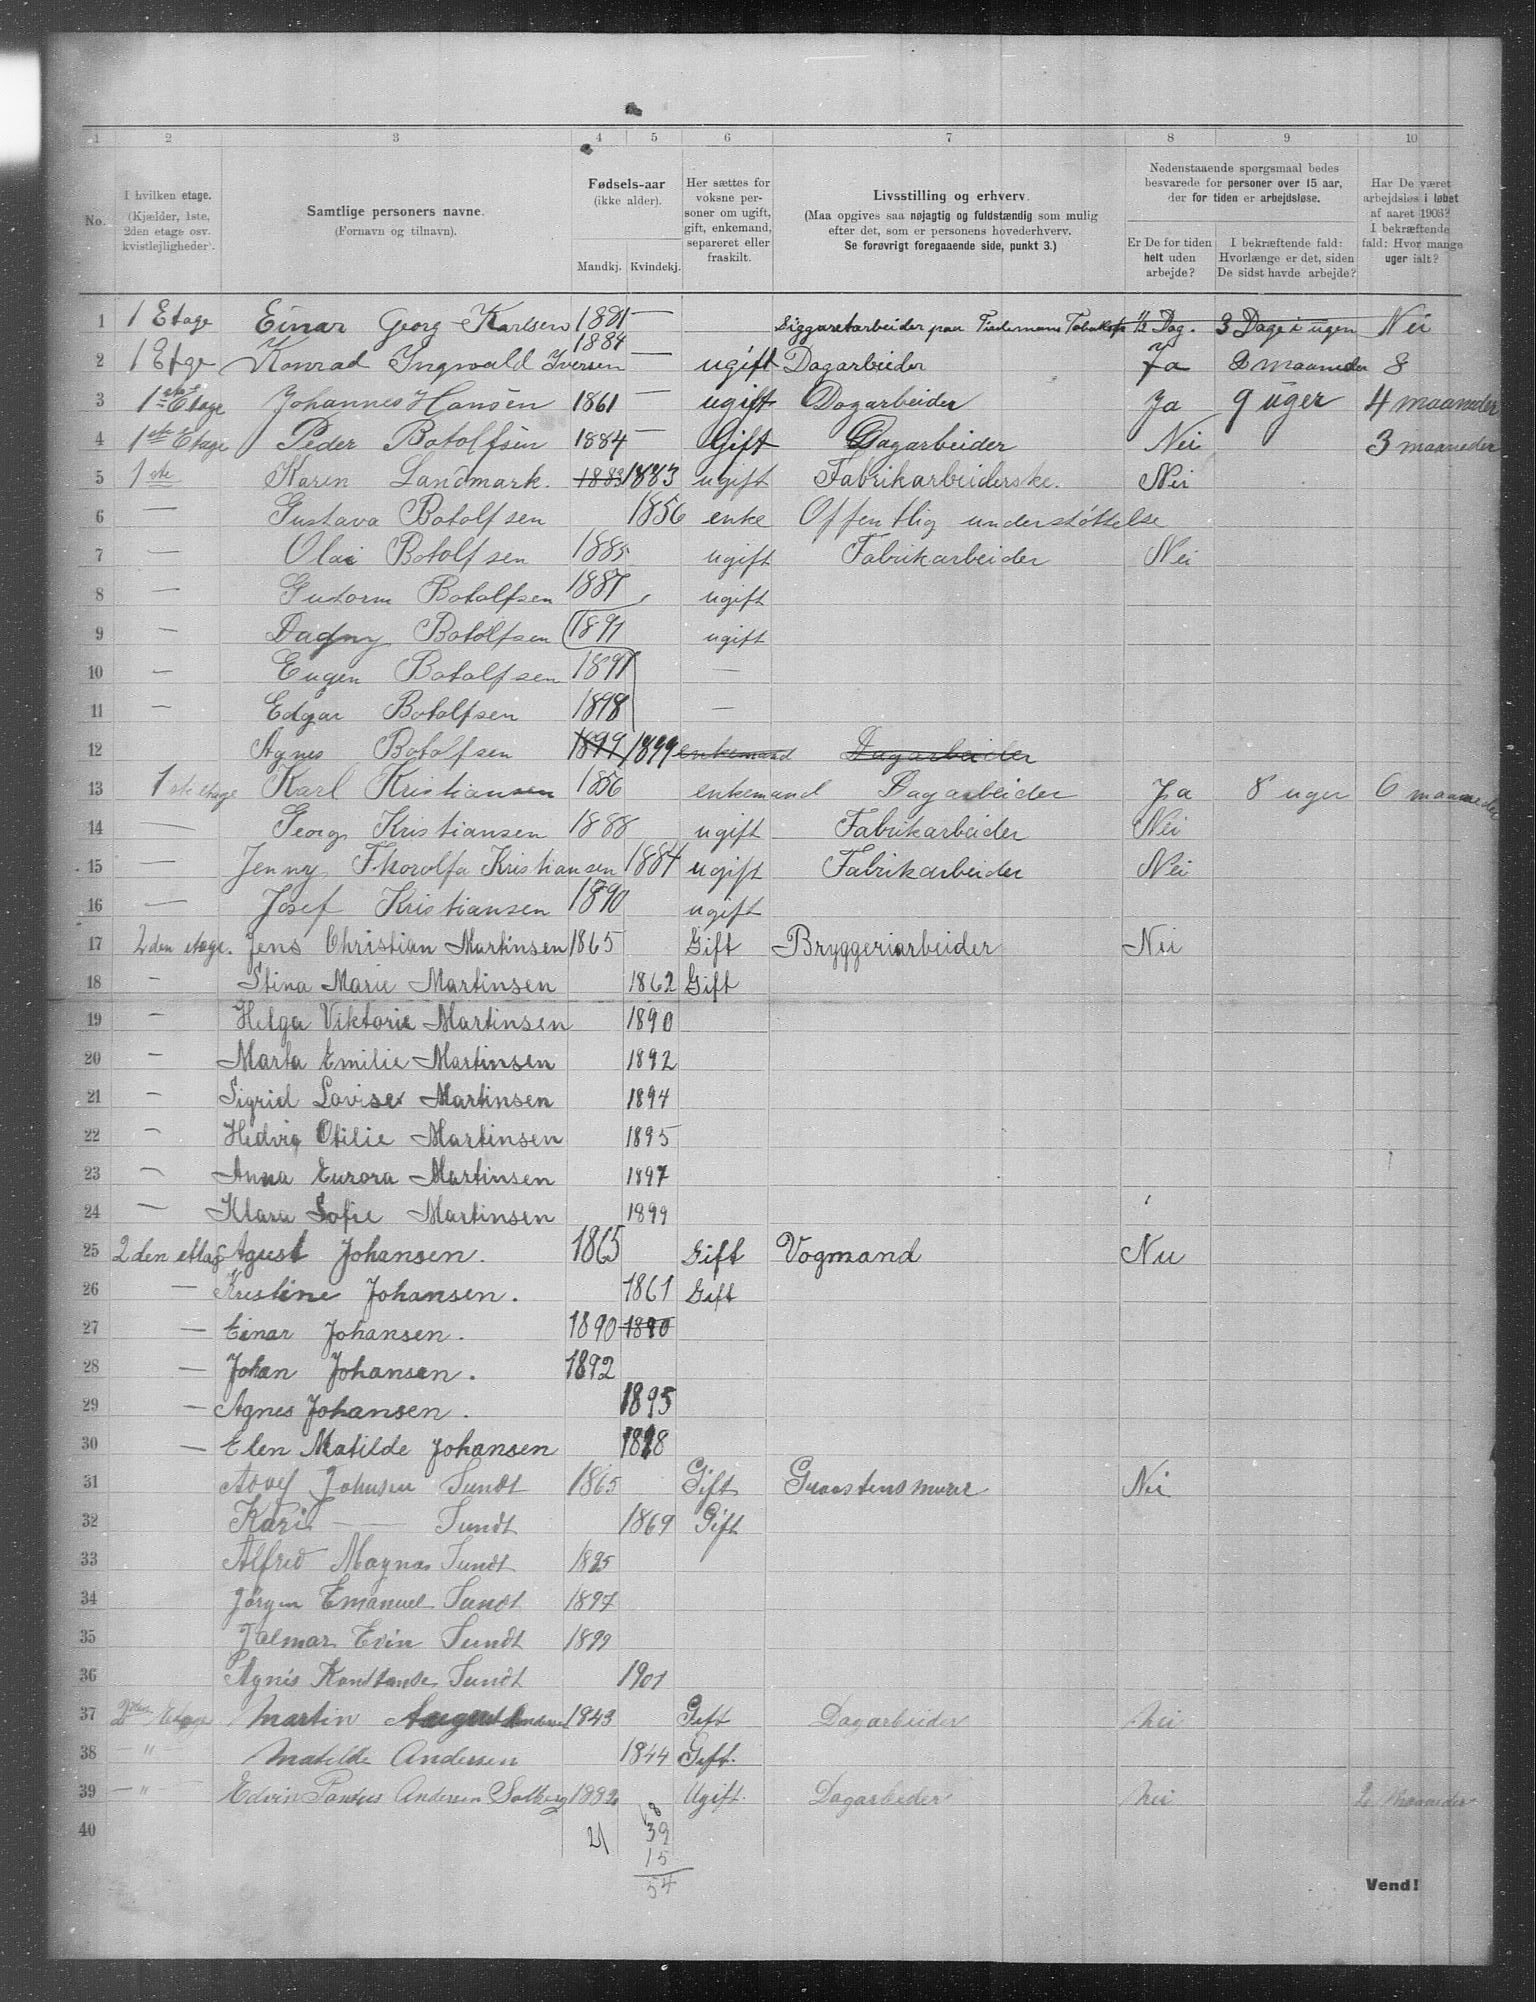 1 2 3 4 5 6 7 8 9 10
No.
I hvilken etage.
(Kjælder, 1ste,
2den etage osv.
kvistlejligheder).
Samtlige personers navne.
(Fornavn og tilnavn).
Fødsels-aar
(ikke alder).
Mandkj. Kvindekj.
Her sættes for
voksne per-
soner om ugift,
gift, enkemand,
separeret eller
fraskilt.
Livsstilling og erhverv.
(Maa opgives saa nøjagtig og fuldstændig som mulig
efter det, som er personens hovederhverv.
Se forøvrigt foregaaende side, punkt 3.)
Nedenstaaende spørgsmaal bedes
besvarede for personer over 15 aar,
der for tiden er arbejdsløse.
Er De for tiden
helt uden
arbejde?
I bekræftende fald:
Hvorlænge er det, siden
De sidst havde arbejde?
Har De været
arbejdsløs i løbet
af aaret 1903?
I bekræftende
fald: Hvor mange
uger ialt?
1 1 Etage Einar Georg Karlsen 1881 — Siggaretarbeider paa Tiedemans Tobaksfa ½ Dag. 3 Dage i ugen Nei
2 1 Etge Konrad Ingwald Iversen 1884 — ugift Dagarbeider Ja 2 maaneder 8
3 1ste Etage Johannes Hansen 1861 — ugift Dagarbeider Ja 9 uger 4 maaneder
4 1ste Etage Peder Botolfsen 1884 — Gift Dagarbeider Nei 3 maaneder
5 1ste Karen Landmark. 1883 1883 ugift Fabrikarbeiderske. Nei
6 — Gustava Botolfsen 1856 enke Offentlig understøttelse
7 — Olai Botolfsen 1885 ugift Fabrikarbeider Nei
8 — Gudorm Botolfsen 1887 ugift
9 — Dagny Botolfsen 1891 ugift
10 — Eugen Botolfsen 1897 —
11 — Edgar Botolfsen 1898 —
12 Agnes Botolfsen 1899 1899 enkemand Dagarbeider
13 1ste etage Karl Kristiansen 1856 enkemand Dagarbeider Ja 8 uger 6 maaneder
14 — Georg Kristiansen 1888 ugift Fabrikarbeider Nei
15 — Jenny Thorolfa Kristiansen 1884 ugift Fabrikarbeider Nei
16 — Josef Kristiansen 1890 ugift
17 2den etage. Jens Christian Martinsen 1865 Gift Bryggeriarbeider Nei
18 — Stina Marie Martinsen 1862 Gift
19 — Helga Viktoria Martinsen 1890
20 — Marta Emilie Martinsen 1892
21 — Sigrid Lovise Martinsen 1894
22 — Hedvig Otilie Martinsen 1895
23 — Anna Eurora Martinsen 1897
24 — Klara Sofie Martinsen 1899
25 2 den ettag Agust Johansen. 1865 Gift Vogmand Nei
26 — Kristine Johansen. 1861 Gift
27 — Einar Johansen. 1890 1890
28 — Johan Johansen. 1892
29 — Agnes Johansen. 1895
30 — Elen Matilde Johansen 1898
31 Adolf Johnsen Sundt 1865 Gift Graastensmurer Nei
32 Kari — Sundt 1869 Gift
33 Alfred Magnas Sundt 1895
34 Jörgen Emanuel Sundt 1897
35 Jalmar Evin Sundt 1899
36 Agnes Konstanse Sundt 1901
37 2den Etage Martin August Andersen 1843 Gift Dagarbeider Nei
38 — " Matilde Andersen 1844 Gift.
39 — " — Edvin Andersen Solberg 1882 Ugift. Dagarbeder Nei 2 Maaneder
40
21 18
39
15
54
Vend!